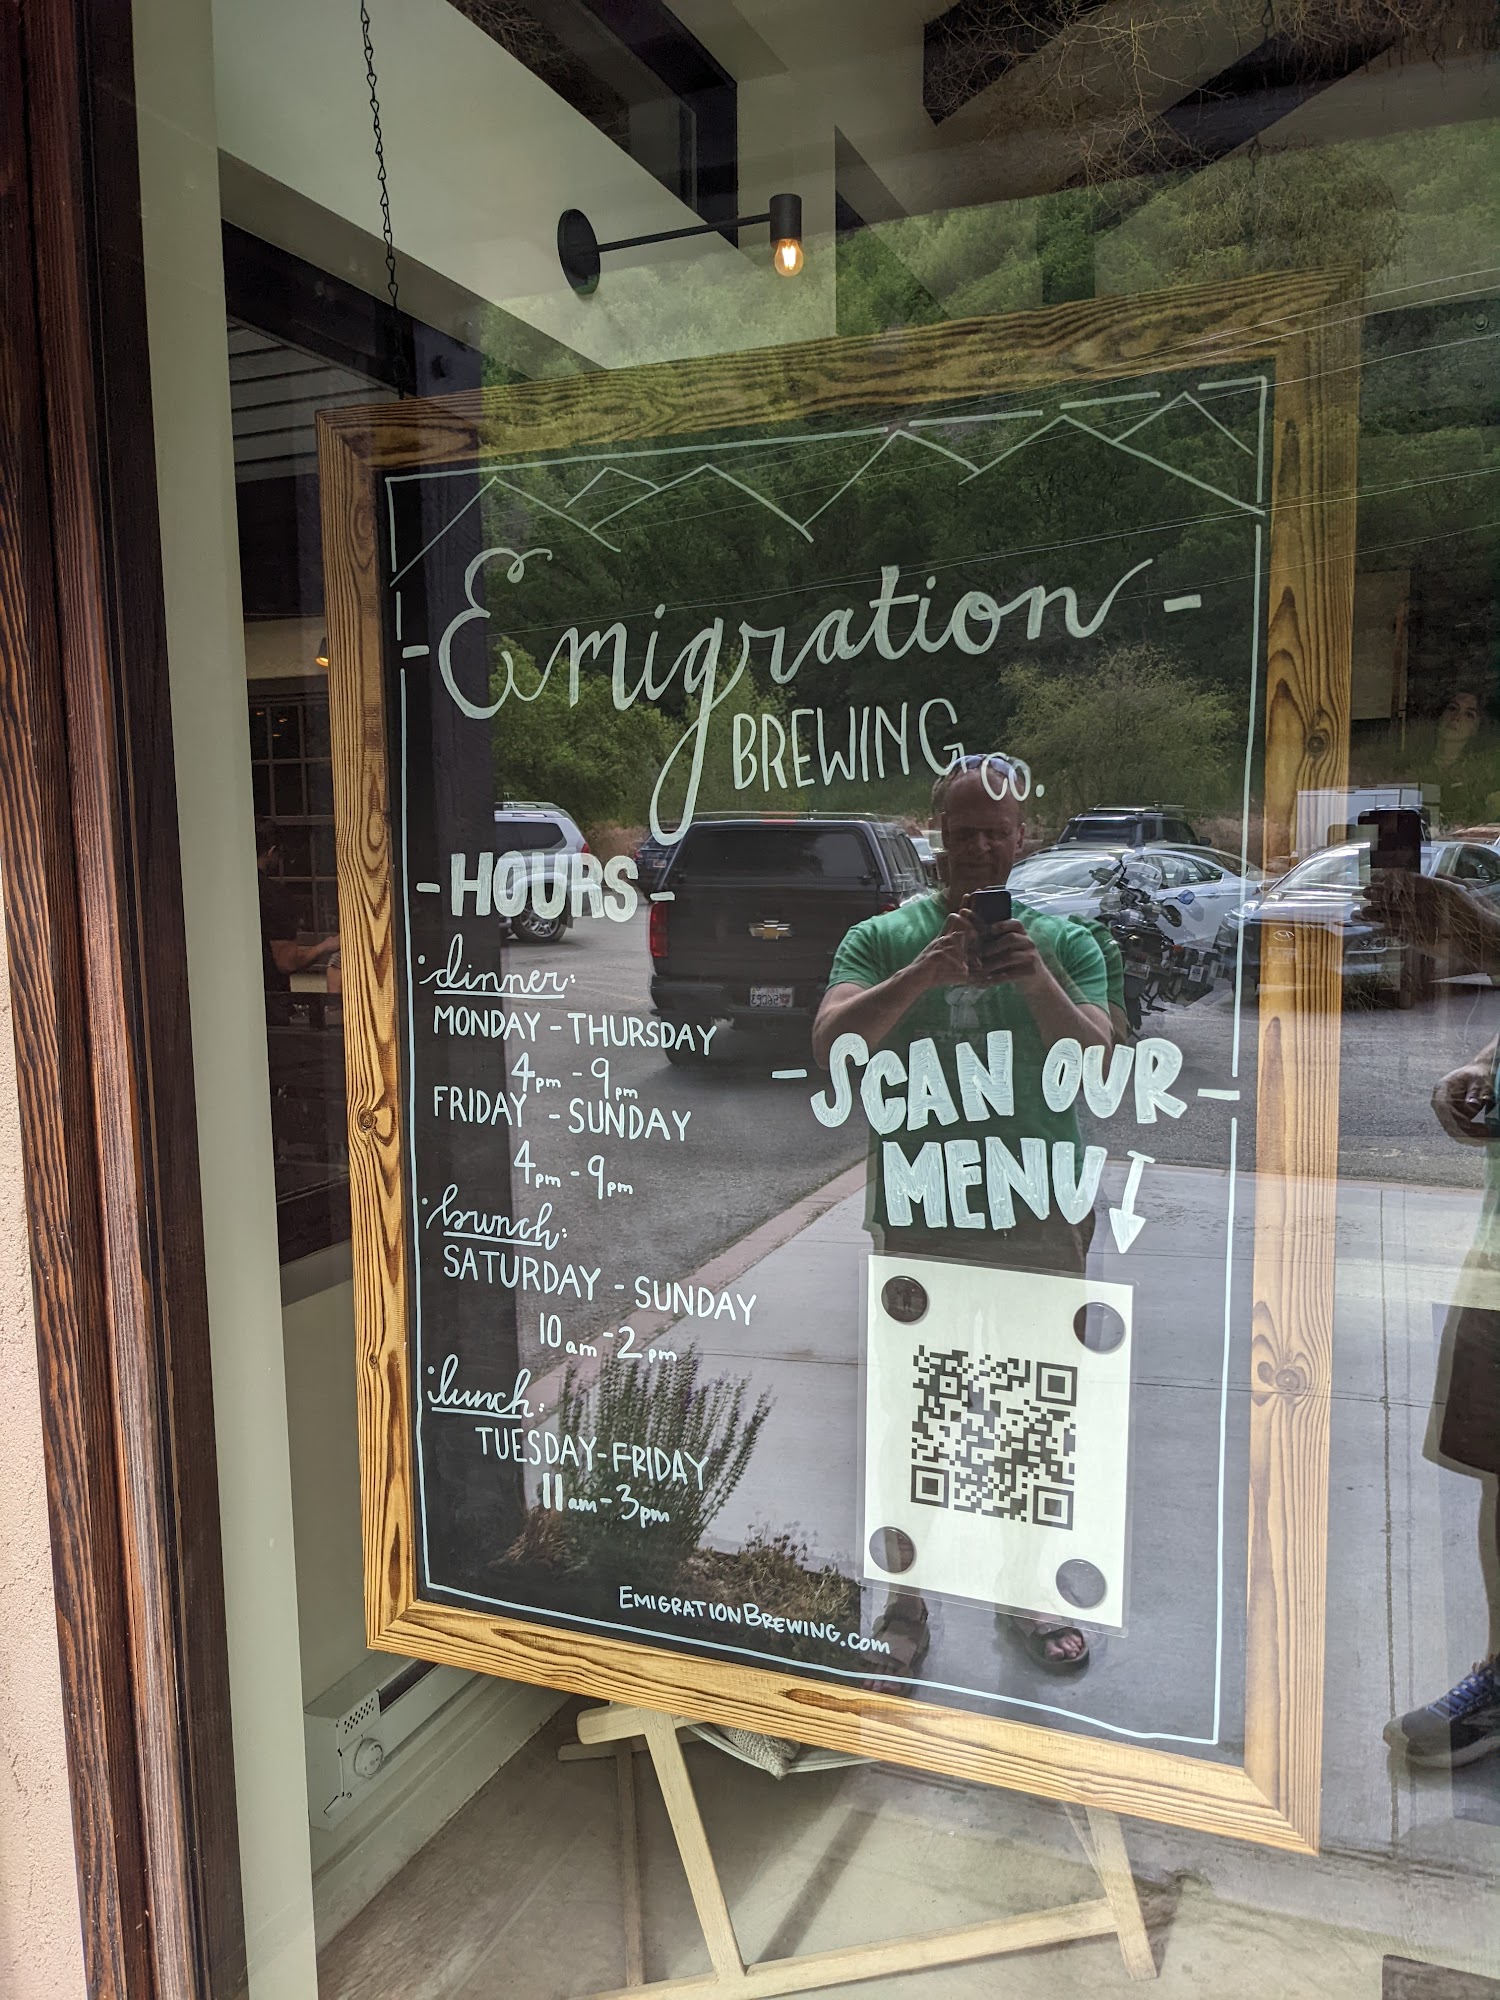 - Emigration -
BREWING CO.
- HOURS -
• dinner:
MONDAY - THURSDAY
4pm - 9pm
FRIDAY - SUNDAY
4pm - 9pm
• brunch:
SATURDAY - SUNDAY
10am - 2pm
• lunch:
TUESDAY - FRIDAY
11am - 3pm
- SCAN OUR -
MENU
EMIGRATIONBREWING.COM